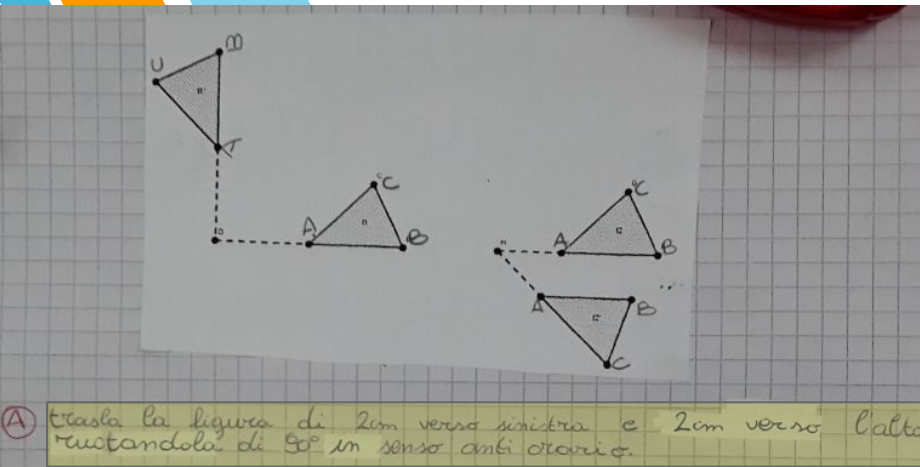 B
U
A
C
A
B
C
A
B
A
B
C
A trasla la figura di 2cm verso sinistra e 2cm verso l'alto
ruotandola di 90° in senso anti orario.